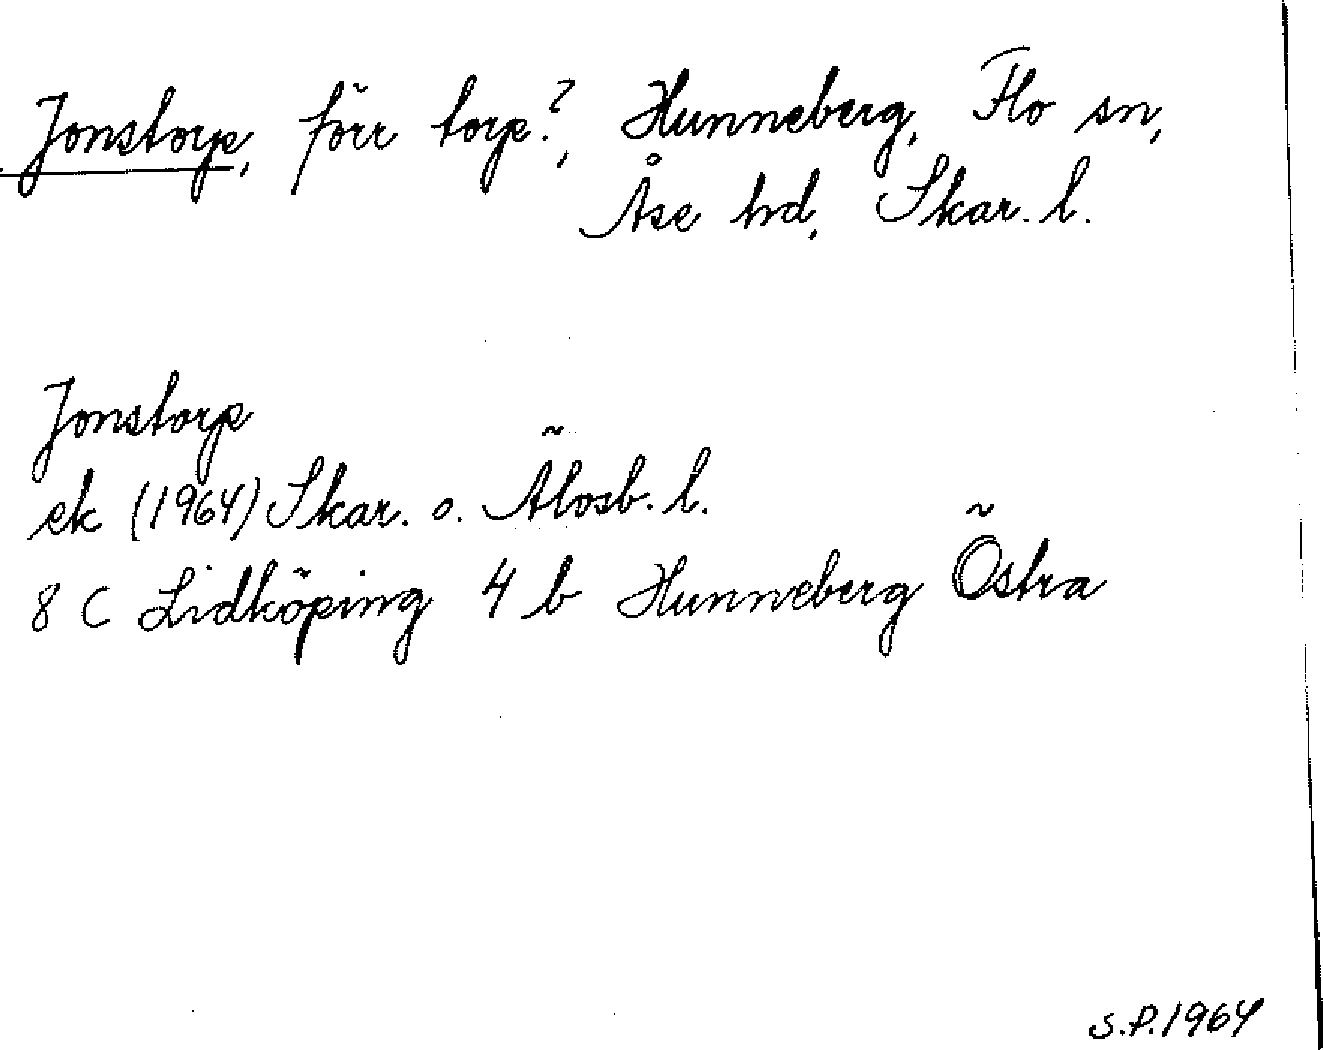 Jonstorp, förr torp?, Hunneberg, Flo sn,
Åse hd, Skar. l.
Jonstorp
ek (1964) Skar. o. Älvsb. l.
8 C Lidköping 4 b Hunneberg Östra
S.P. 1964